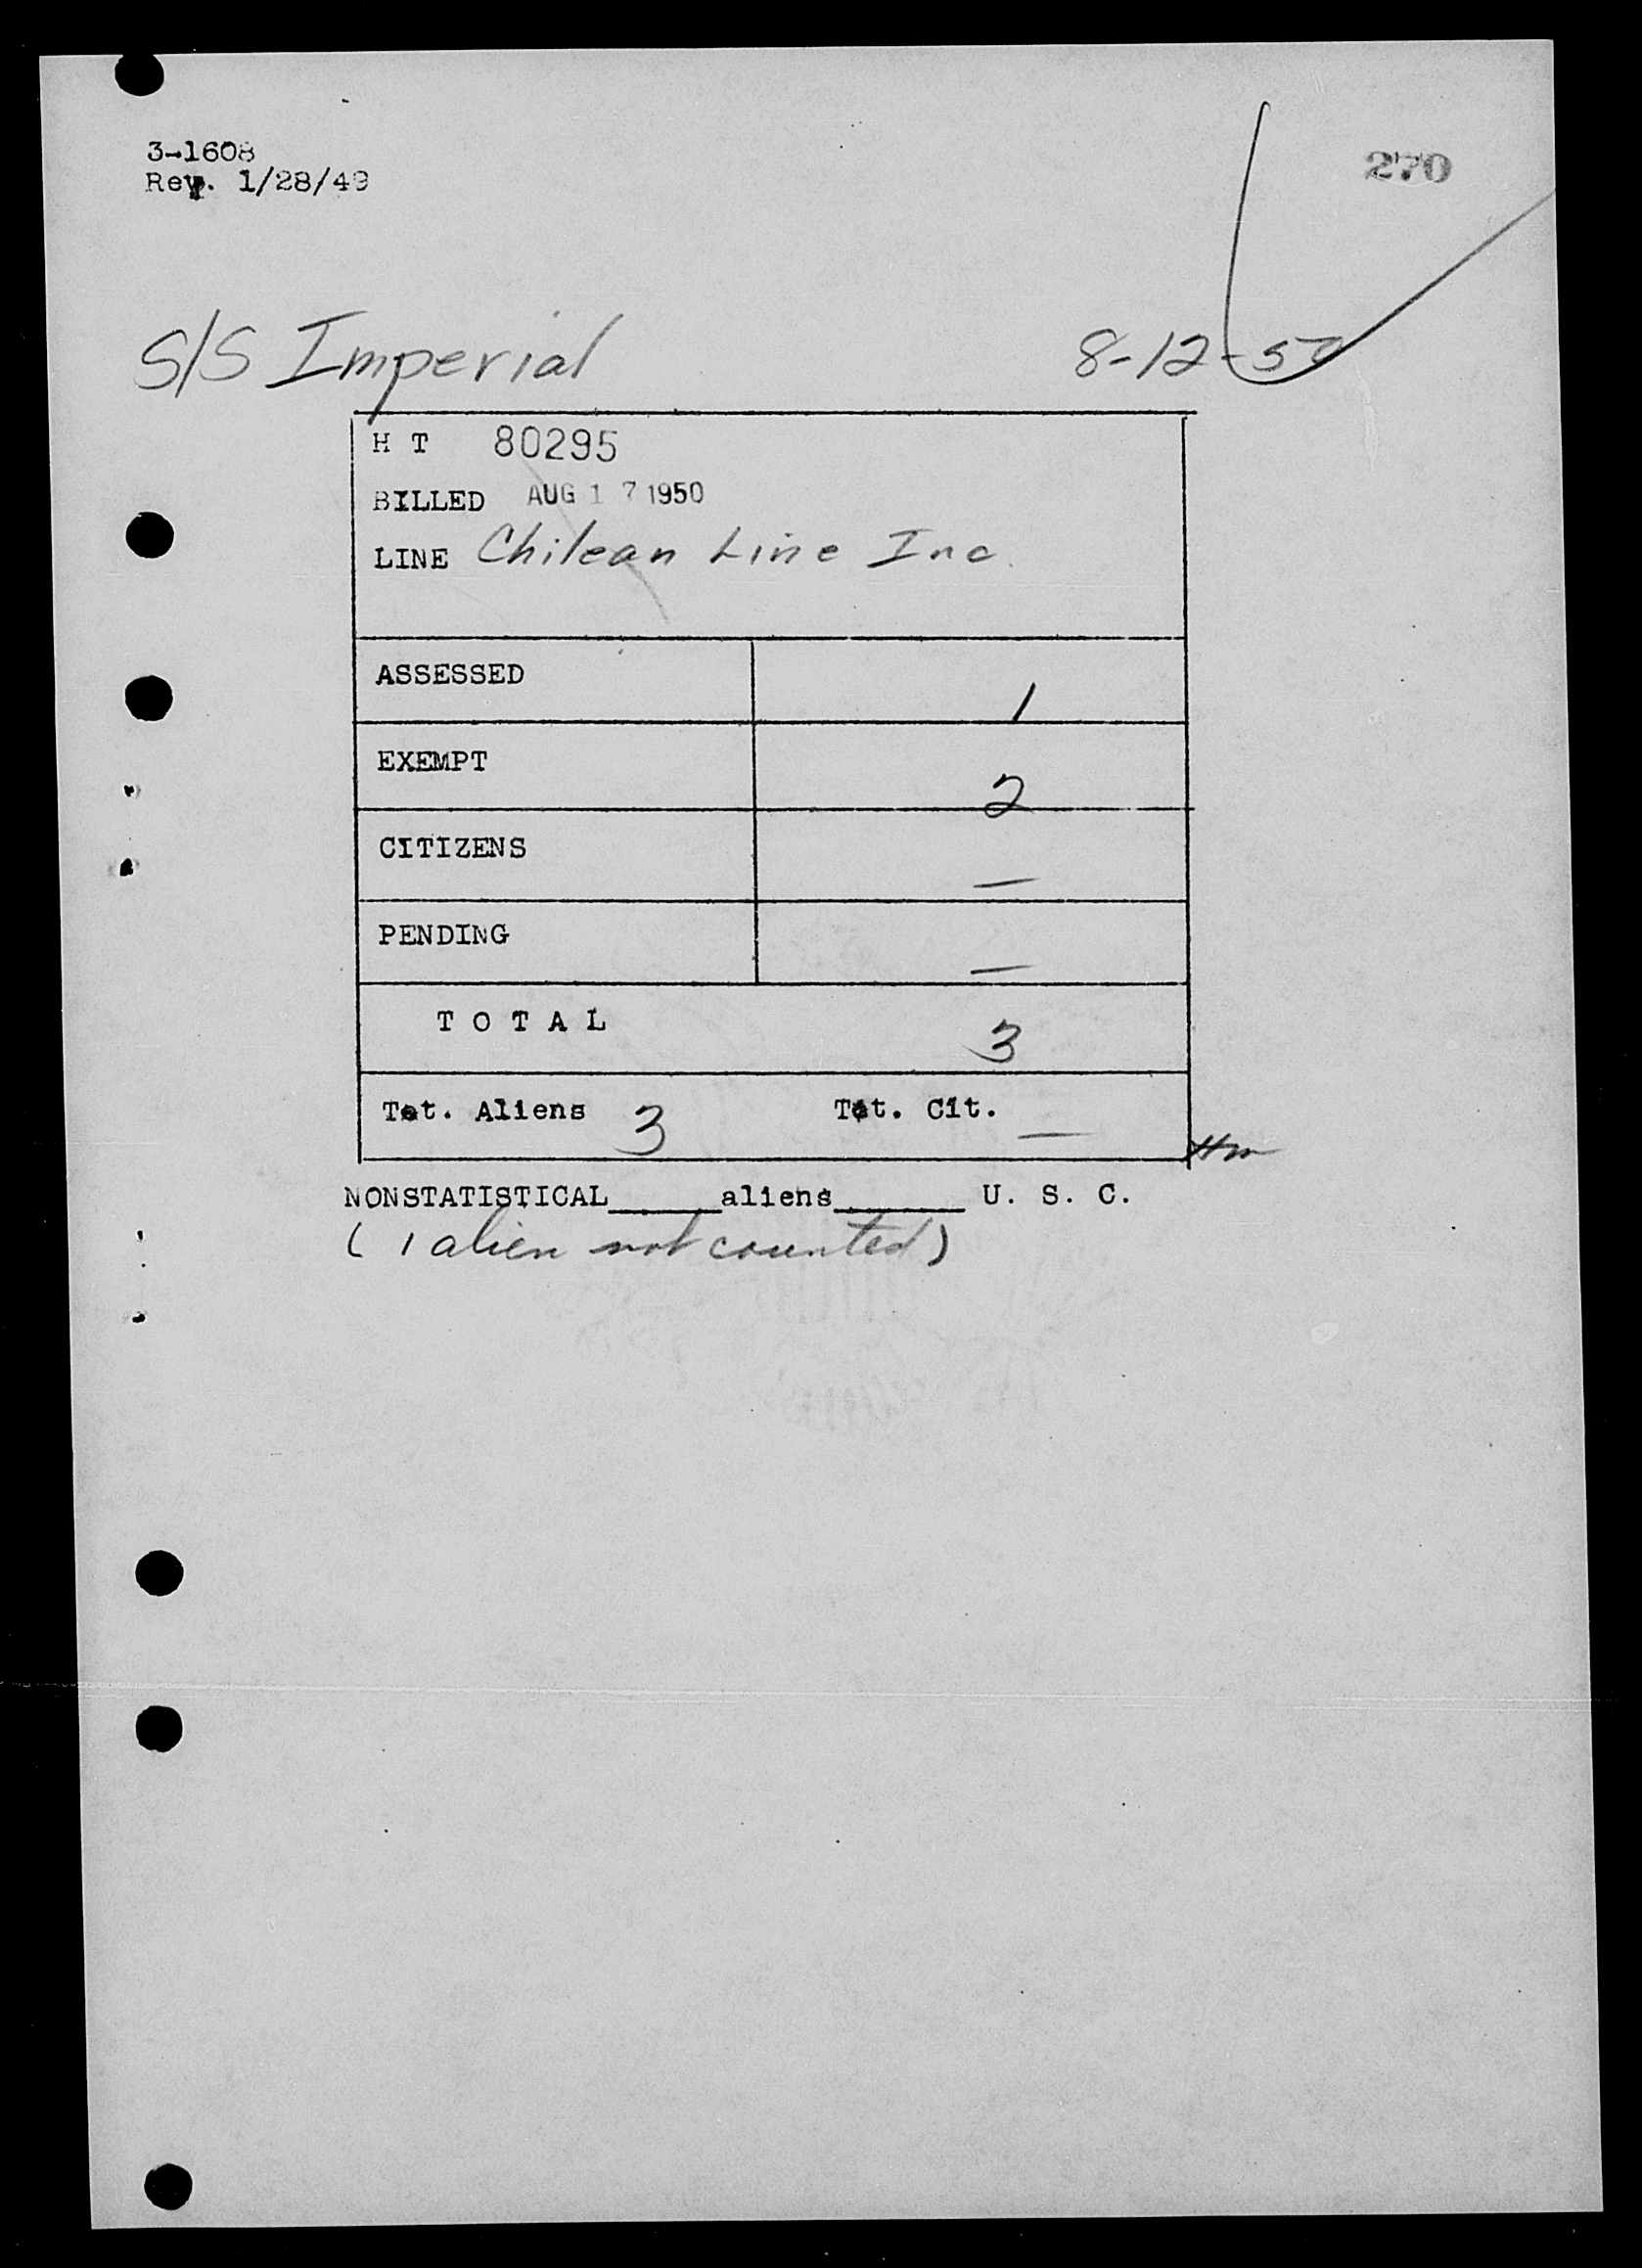 3-1608
Rev. 1/28/49
270
S/S Imperial 8-12-50
H T 80295
BILLED AUG 17 1950
LINE Chilean Line Inc.
ASSESSED 1
EXEMPT 2
CITIZENS —
PENDING —
T O T A L 3
Tot. Aliens 3 Tot. Cit. —
NONSTATISTICAL_____aliens______ U. S. C.
( 1 alien not counted )